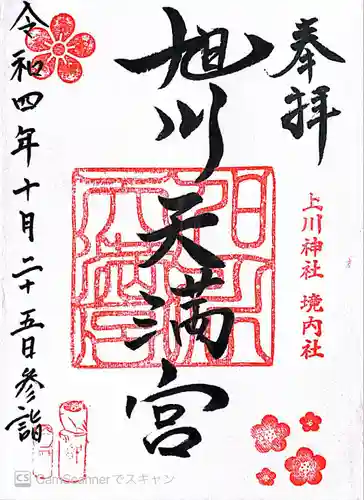 奉拝
上川神社 境内社
旭川天満宮
令和四年十月二十五日参詣
CS CamScannerでスキャン